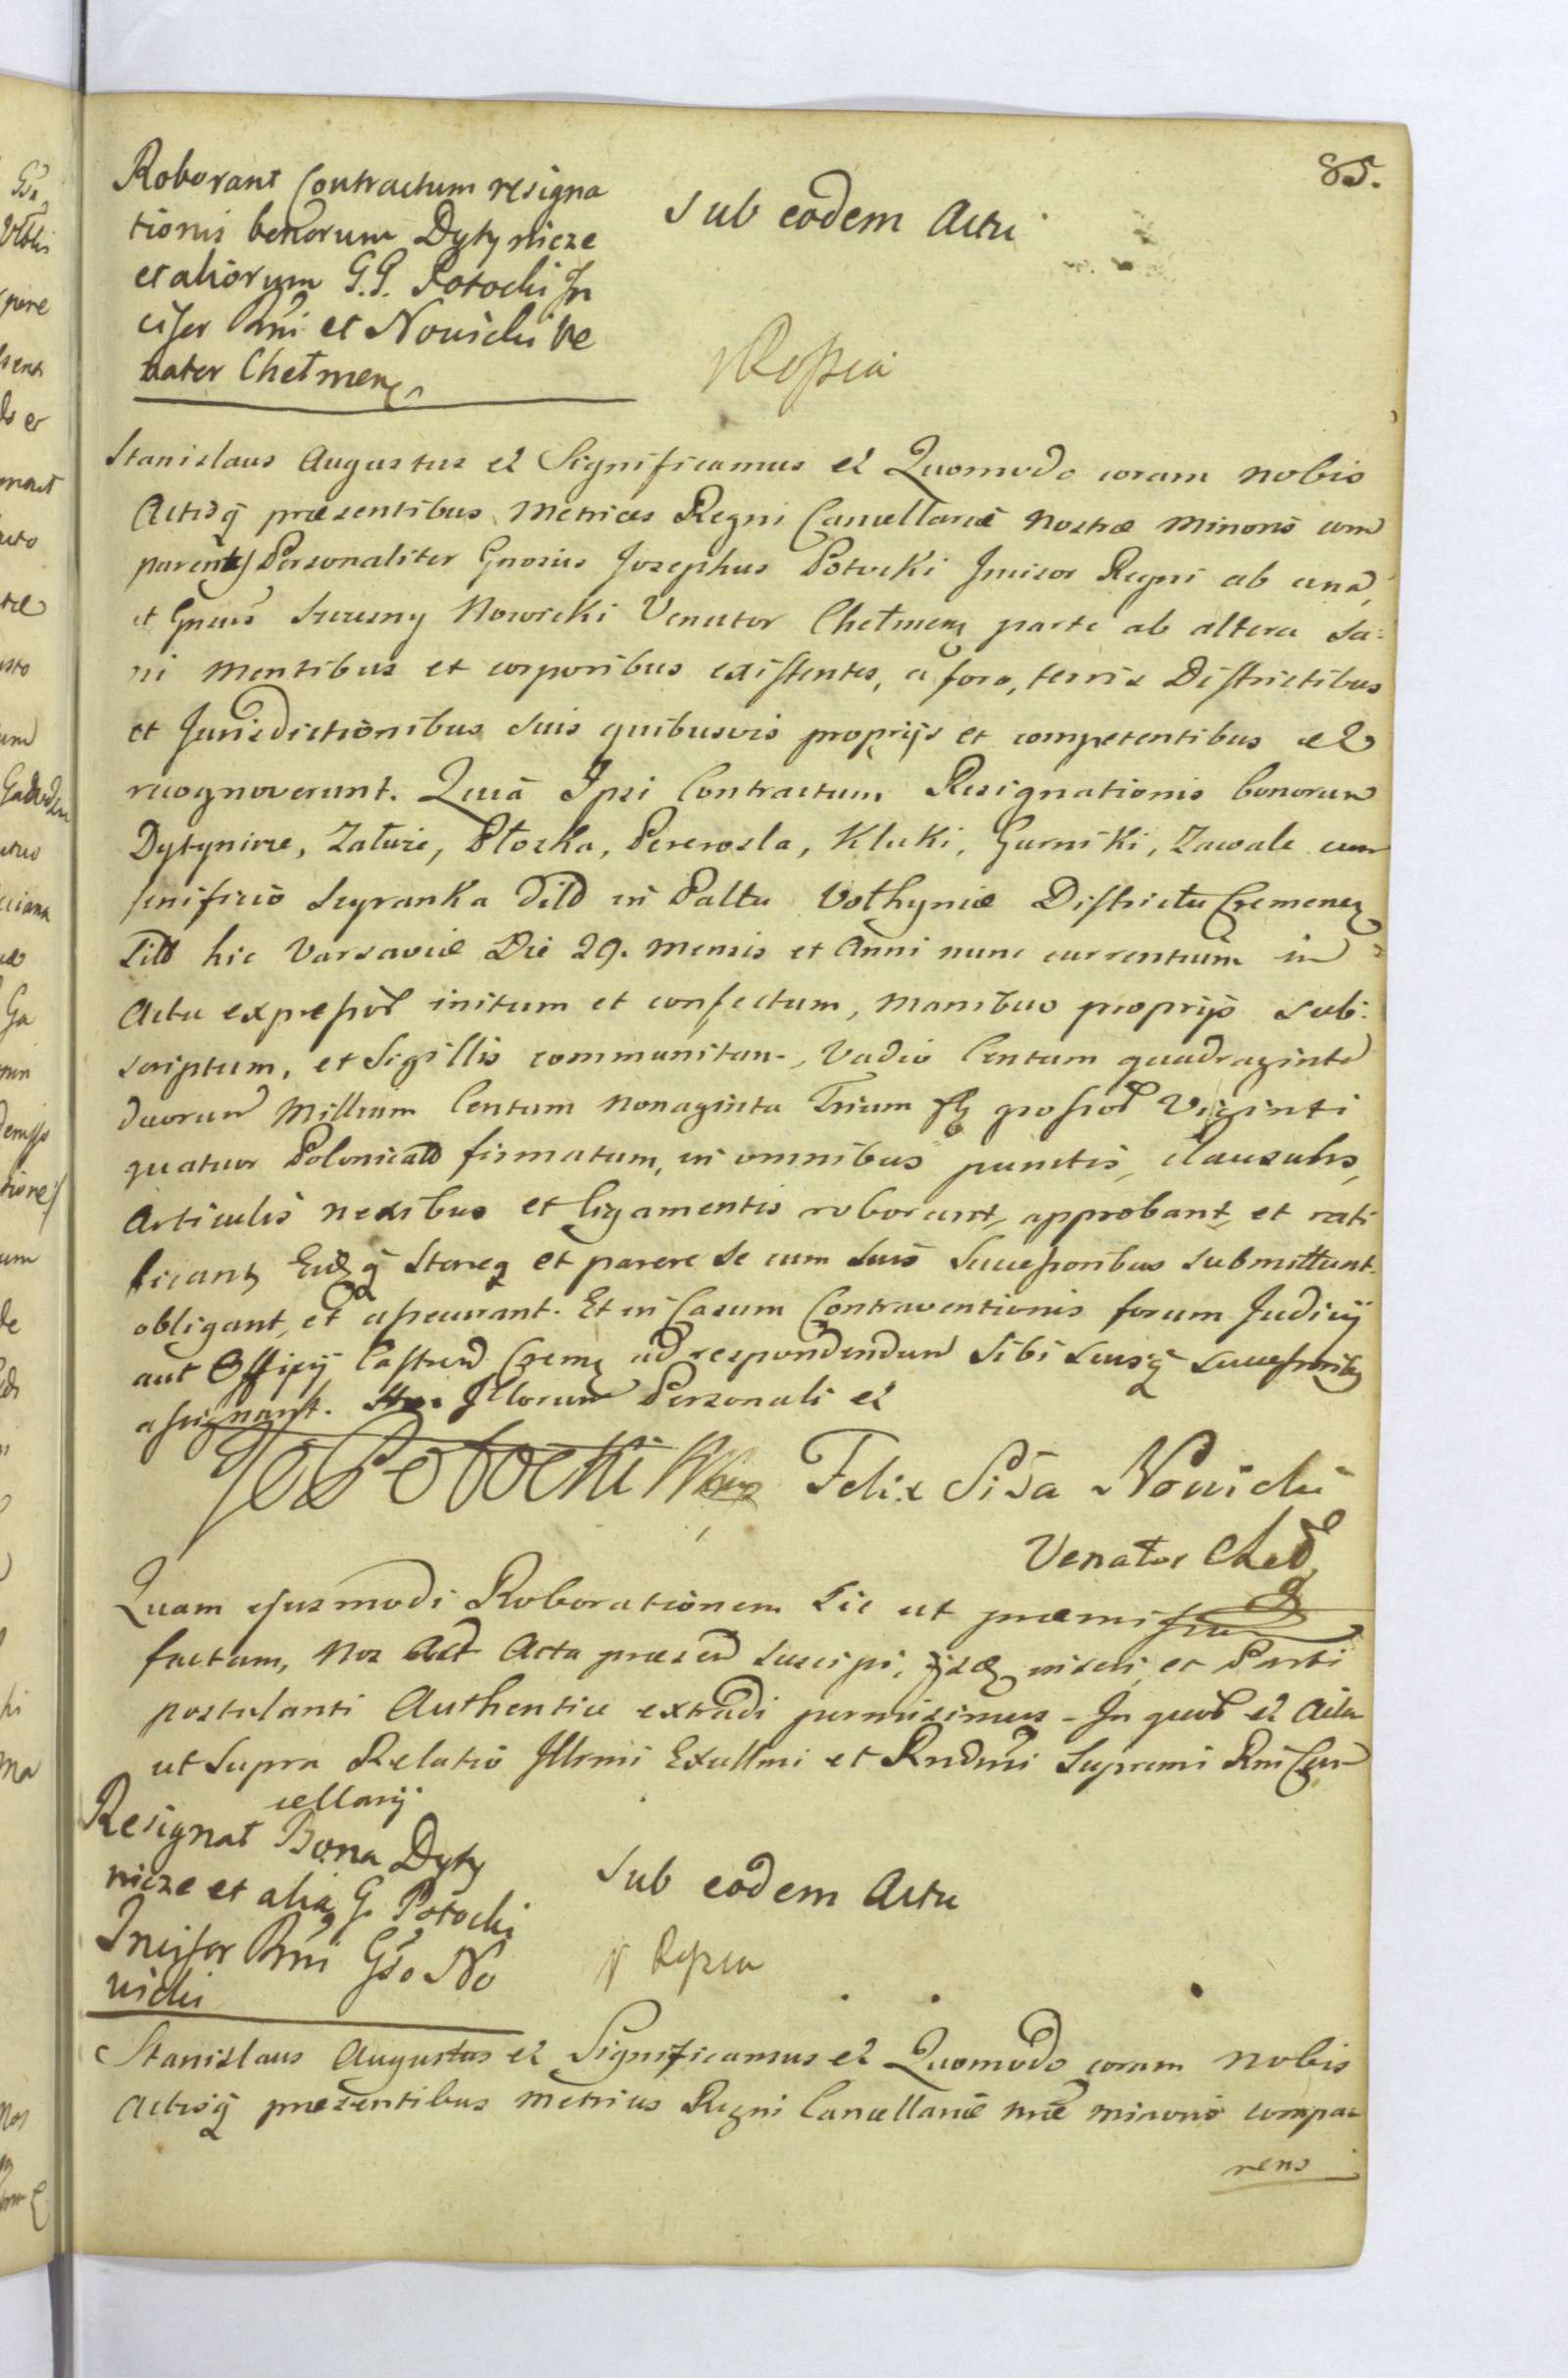 85.
Roborant Contractum resigna
tionis bonorum Dytynicze
et aliorum G.G. Potocki In
cisor Rni et Nowicki Ve
nator Chełmen
Sub eodem Actu
Stanislaus Augustus et Significamus et Quomodo coram nobis
Actisq̃ præsentibus Metrices Regni Cancellariæ nostræ Minoris com
parentes Personaliter Gnosus Josephus Potocki Incisor Regni ab una,
et Gnsus Szczesny Nowicki Venator Chełmen parte ab altera Sa:
ni mentibus et corporibus existentes, a foro, terris Districtibus
et Jurisdictionibus suis quibusvis proprijs et competentibus et
recognoverunt. Quia Ipsi Contractum Resignationis bonorum
Dytynicze, Zaturie, Płoska, Pererosla, Kluki, Gurniki, Zawale cum
Sup̃ranka in Paltu Vołhyniæ Districtu Cremenen
hic Varsaviæ Die 29. Mensis et Anni nunc currentium in
Actu expressor initum et confectum, manibus proprijs sub:
scriptum, et Sigillis communitum, Vadio Centum quadraginta
duorum Millium Centum Nonaginta Trium fl grossor Viginti
quatuor Polonical firmatum, in omnibus punctis, clausulis,
Articulis nexibus et ligamentis roborant, approbant, et rati
ficant, q̃ Stareq et parere se cum suis Successoribus submittunt.
obligant, et assecurant. Et in Casum Contraventionis forum Judicij
aut Officij Castren Crem ad respondendum Sibi suisq̃ successorib
assignant. Illorum Personali et
Jos Potocki Felix Nowicki
Venator Cheł
Quam ejusmodi Roborationem sic ut præmissum
factam, Nos Acta præsen suscipi, inseri et Parti
postulanti Authentice extradi permisimus - In quor et Acta
ut supra Relatio Illrmi Excellmi et Rndmi Supremi Rni Can
cellarij
Resignat Bona Dyty
nicze et alia G. Potocki
Incisor Rni Gso No
wicki
Sub eodem Actu
Stanislaus Augustus et Significamus et Quomodo coram nobis
Actisq̃ præsentibus Metrices Regni Cancellariæ nræ minoris compa=
rens